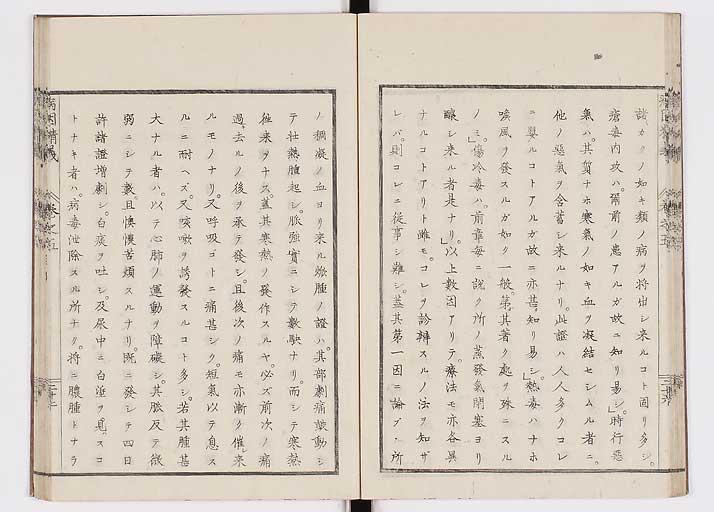 諸カクノ如キ類ノ病ヲ将出シ来ルコト固リ多シ。
瘡毒内攻ハ。爾前ノ患アルガ故ニ知リ易シ。時行惡
氣ハ。其質ナホ寒氣ノ如キ血ヲ凝結セシムル者ニ。
他ノ惡氣ヲ含蓄シ来ルナリ。此證ハ人人多クコレ
ニ嬰ルコトアルガ故ニ亦甚。知リ易シ。熱毒ハナホ
喉風ヲ發スルガ如ク一般。第其著ク起ヲ殊ニスル
ノミ。傷冷毒ハ。前章毎ニ説ク所ノ蒸發氣閉塞ヨリ
釀シ来ル者是ナリ。以上數因アリテ。療法モ亦各異
ナルコトアリト雖モ。コレヲ診辨スルノ法ヲ知ザ
レバ。則コレニ従事シ難シ。蓋其第一因ニ論ブ。所
ノ稠凝ノ血ヨリ来ル焮腫ノ證ハ。其部劇痛鼓動シ
テ壮熱雁起シ。脈強實ニシテ數駃ナリ。而シテ寒熱
徃来ヲナス。蓋其寒熱ノ發作スルヤ。必ズ前次ノ痛
過。去ルノ後ヲ承テ發シ。且後次ノ痛モ亦漸ク催来
ルモノナリ。又呼吸ゴトニ痛甚シク。短氣以テ息ス
ルニ耐ヘズ。又咳嗽ヲ誘發スルコト多シ。若其腫甚
大ナル者ハ。以テ心肺ノ運動ヲ障礙シ。其脈反テ微
弱ニシテ數且懊憹苦煩スルナリ既ニ發シテ四日
許諸證増劇シ。白痰ヲ吐シ。及尿中ニ白滓ヲ見スコ
トナキ者ハ。病毒泄除スル所ナク。将ニ膿腫トナラ